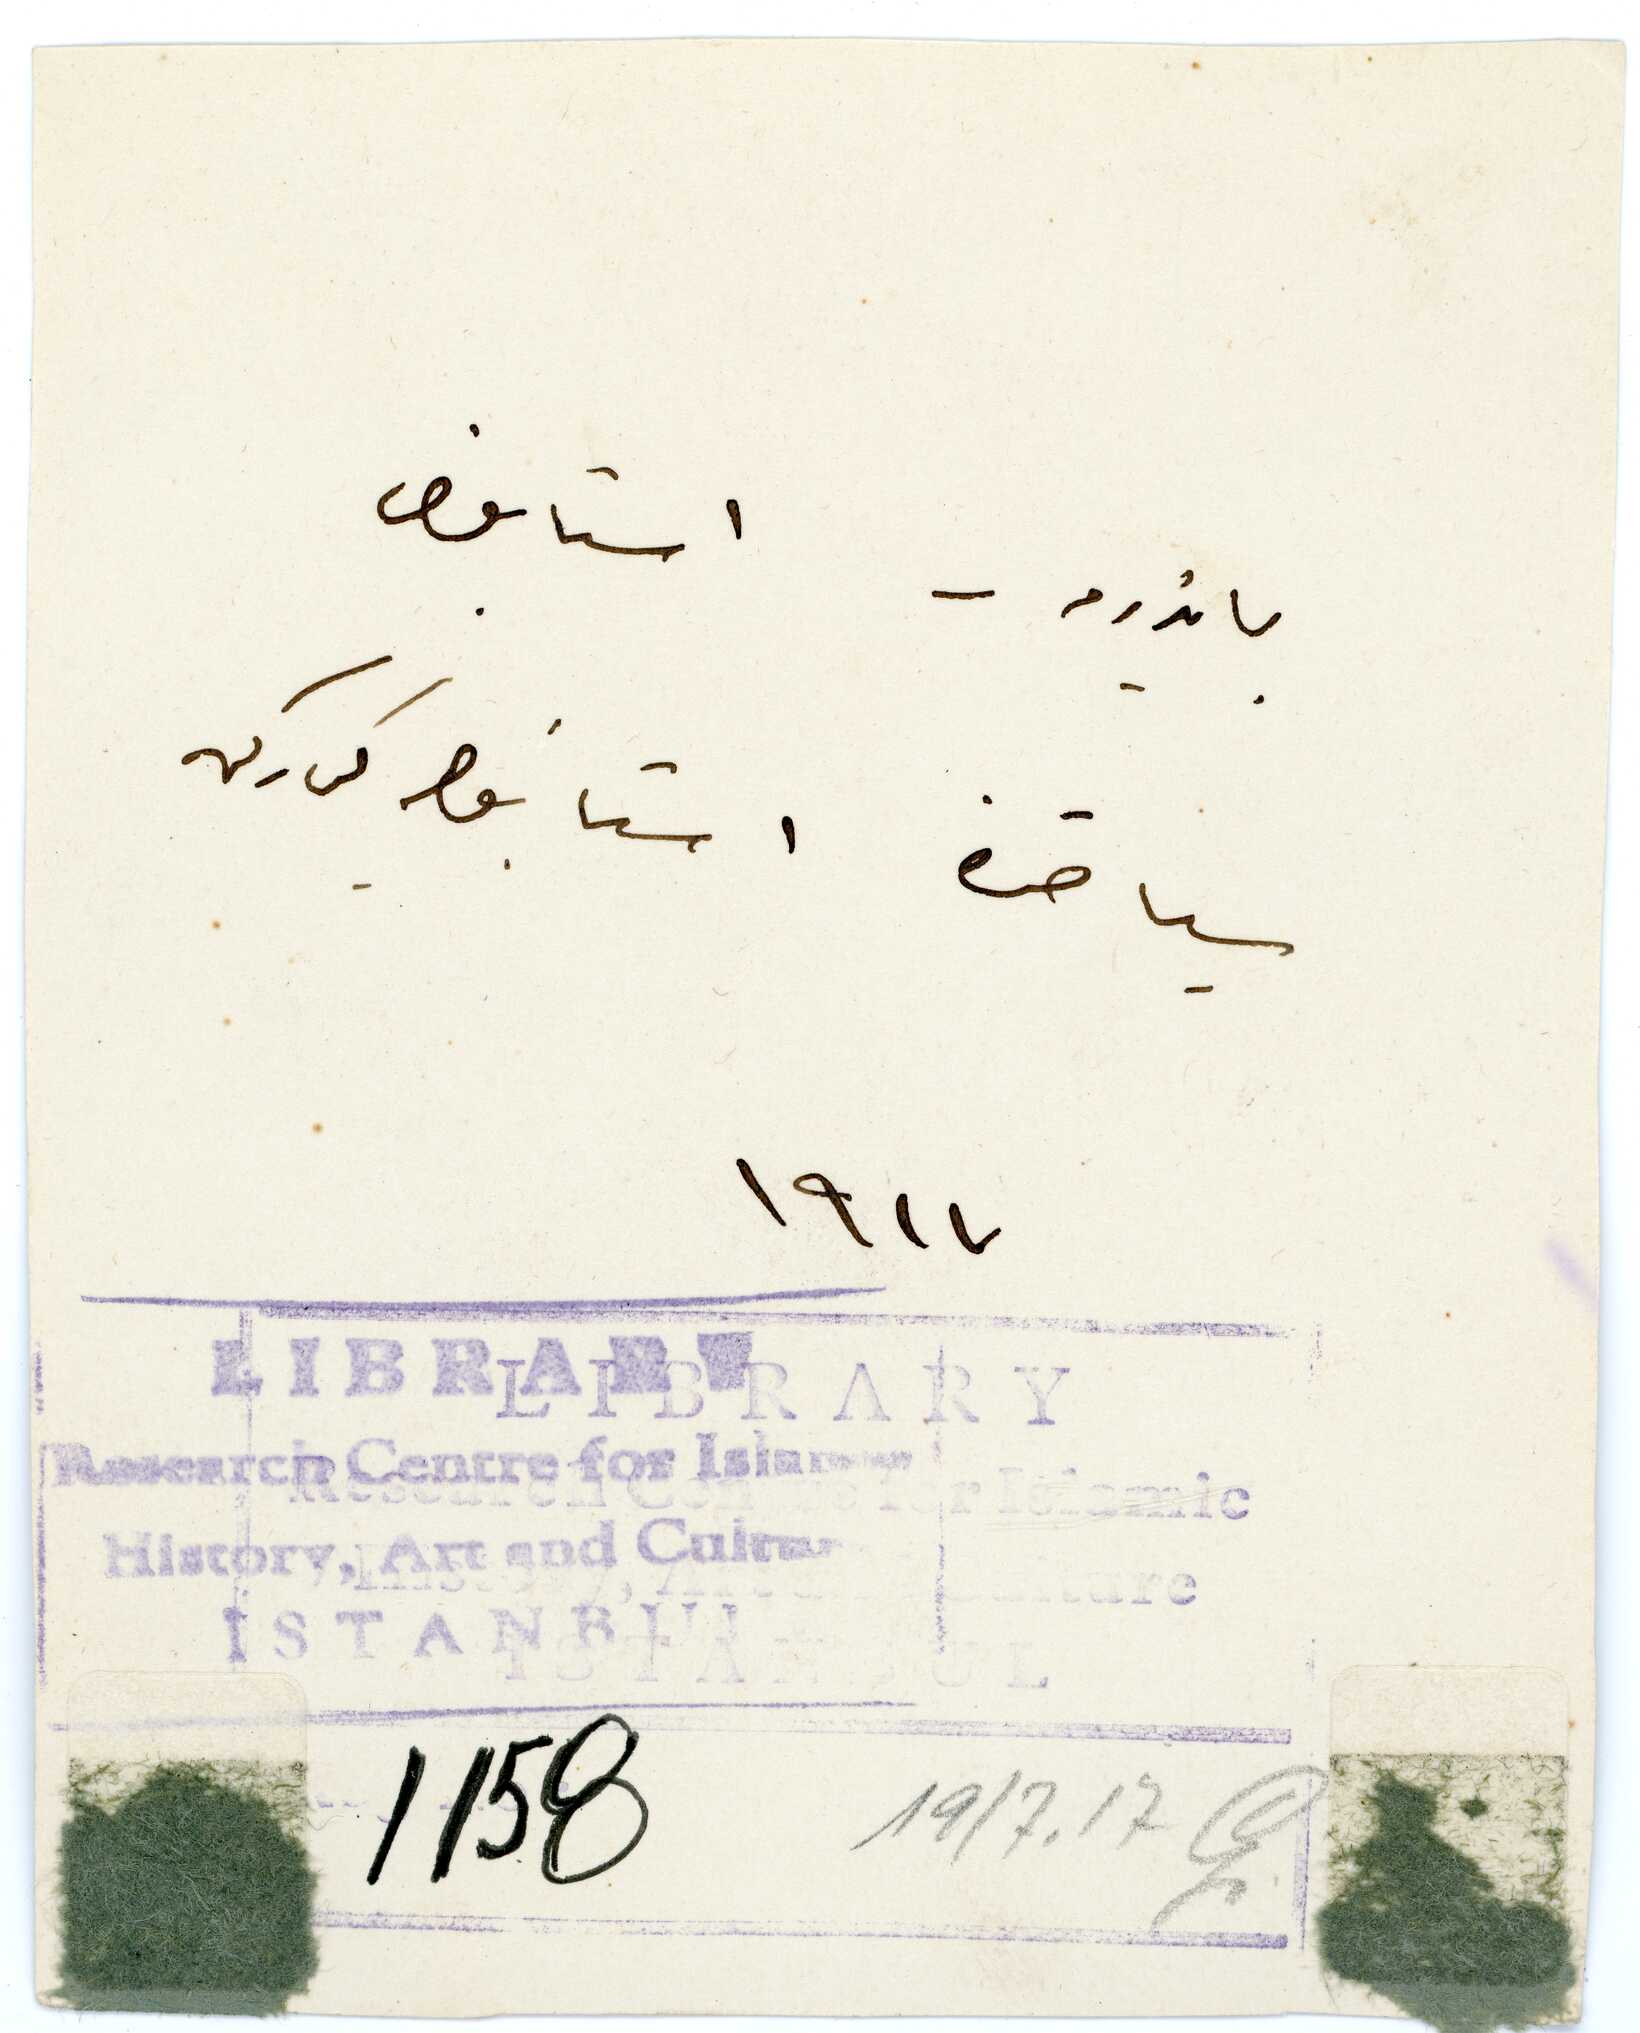 باندیرمه – استانبول
سیاحتنده استانبوله کیررکن
١٩١٧
LIBRARY
Research Centre for Islamic
History, Art and Culture
ISTANBUL
LIBRARY
Research Centre for Islamic
History, Art and Culture
ISTANBUL
1158
19/7.17